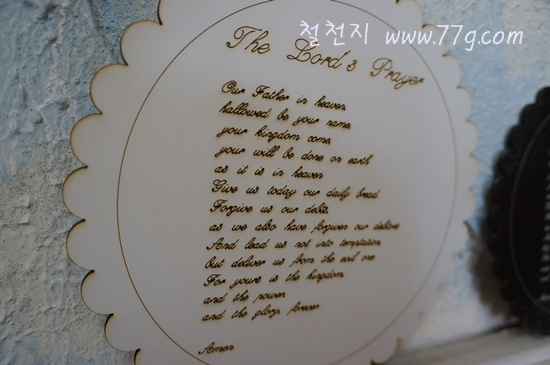 철천지 www.77g.com
The Lord's Prayer
Our Father in heaven
hallowed be your name
your kingdom come
your will be done on earth
as it is in heaven
Give us today our daily bread
Forgive us our debts,
as we also have forgiven our debtors
And lead us not into temptation
but deliver us from the evil one
For yours is the kingdom
and the power
and the glory, forever
Amen